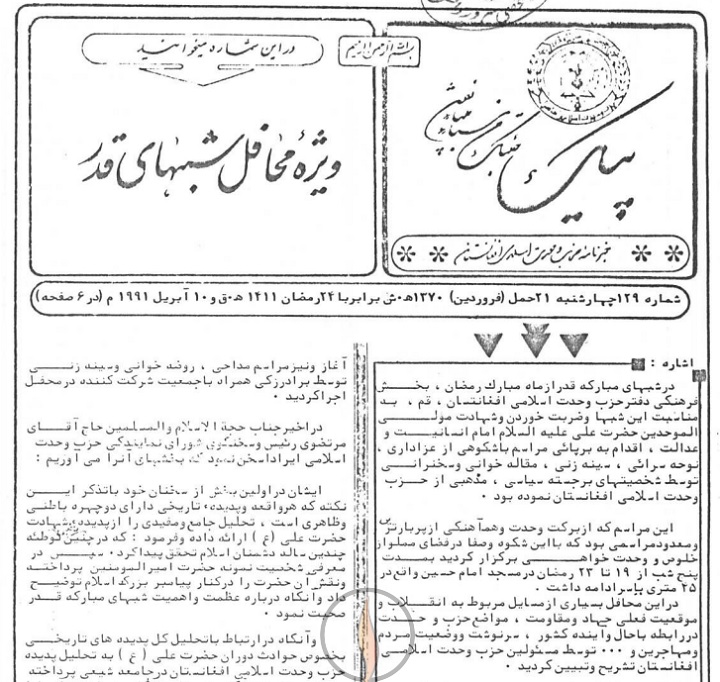 در این شماره میخوانید
ویژهٔ محافل شبهای قدر
پیک
خبرنامه حزب وحدت اسلامی افغانستان
شماره ۱۲۹ چهارشنبه ۲۱ حمل (فروردین) ۱۳۷۰ هـ ش برابر با ۲۴ رمضان ۱۴۱۱ هـ ق و ۱۰ آبریل ۱۹۹۱ م (در ۶ صفحه)
اشاره :
در شبهای مبارکه قدر از ماه مبارک رمضان ، بخش
فرهنگی دفتر حزب وحدت اسلامی افغانستان ، قم ، به
مناسبت این شبها و ضربت خوردن و شهادت مولی
الموحدین حضرت علی علیه السلام امام انسانیت و
عدالت ، اقدام به برپائی مراسم باشکوهی از عزاداری ،
نوحه سرائی ، سینه زنی ، مقاله خوانی و سخنرانی
توسط شخصیتهای برجسته سیاسی ، مذهبی از حزب
وحدت اسلامی افغانستان نموده بود ۰
این مراسم که از برکت وحدت و هماهنگی از پربارترین
و معدود مراسمی بود که با این شکوه وصفا در فضای مملو از
خلوص و وحدت خواهی برگزار کردید بمدت
پنج شب از ۱۹ تا ۲۳ رمضان در مسجد امام حسین واقع در
۲۵ متری یاسر ادامه داشت ۰
در این محافل بسیاری از مسایل مربوط به انقلاب و
موقعیت فعلی جهاد و مقاومت ، مواضع حزب وحدت
در رابطه با حال و آینده کشور ، سرنوشت و وضعیت مردم
و مهاجرین و ۰۰۰ توسط مسئولین حزب وحدت اسلامی
افغانستان تشریح و تبیین کردید ۰
آغاز و نیز مراسم مداحی ، روضه خوانی و سینه زنی
توسط برادر زکی همراه با جمعیت شرکت کننده در محفل
اجرا کردید ۰
در اخیر جناب حجة الاسلام والمسلمین حاج آقای
مرتضوی رئیس و سخنگوی شورای نمایندگی حزب وحدت
اسلامی ایراد سخن نمود که بخشهای آنرا می آوریم :
ایشان در اولین بخش از سخنان خود با تذکر این
نکته که هر واقعه و پدیده تاریخی دارای دو چهره باطنی
وظاهری است ، تحلیل جامع و مفیدی را از پدیده شهادت
حضرت علی ( ع ) ارائه داده و فرمود : که در چنین توطئه
چندین ساله دشمنان اسلام تحقق پیدا کرد ۰ سپس در
معرفی شخصیت نمونه حضرت امیرالمومنین پرداخته
و نقش آن حضرت را در کنار پیامبر بزرک اسلام توضیح
داد و آنکاه درباره عظمت و اهمیت شبهای مبارکه قدر
صحبت نمود ۰
و آنکاه در ارتباط با تحلیل کل پدیده های تاریخی
بخصوص حوادث دوران حضرت علی ( ع ) به تحلیل پدیده
حزب وحدت اسلامی افغانستان در جامعه شیعی پرداخته